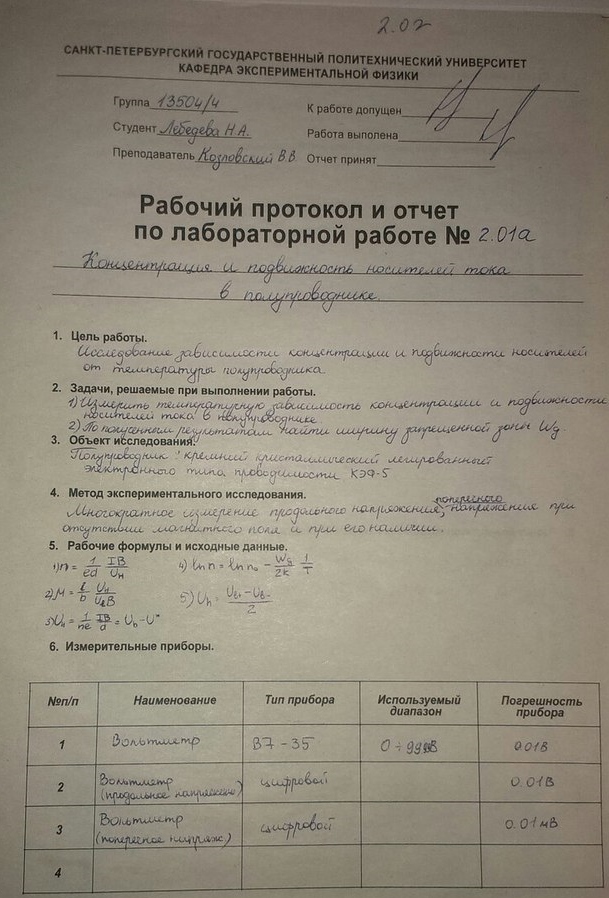 2.02
САНКТ-ПЕТЕРБУРГСКИЙ ГОСУДАРСТВЕННЫЙ ПОЛИТЕХНИЧЕСКИЙ УНИВЕРСИТЕТ
КАФЕДРА ЭКСПЕРИМЕНТАЛЬНОЙ ФИЗИКИ
Группа 13504/4 К работе допущен
Студент Лебедева Н.А. Работа выполена
Преподаватель Козловский В.В. Отчет принят
Рабочий протокол и отчет
по лабораторной работе № 2.01а
Концентрация и подвижность носителей тока
в полупроводнике.
1. Цель работы.
Исследование зависимости концентрации и подвижности носителей
от температуры полупроводника
2. Задачи, решаемые при выполнении работы.
1) Измерить температурную зависимость концентрации и подвижности
носителей тока в полупроводнике
2) По полученным результатам найти ширину запрещенной зоны Wg
3. Объект исследования.
Полупроводник: кремний кристаллический легированный
электронного типа проводимости КЭФ-5
4. Метод экспериментального исследования.
поперечного
Многократное измерение продольного напряжения, напряжения при
отсутствии магнитного поля и при его наличии.
5. Рабочие формулы и исходные данные.
1) n = 1/ed IB/Uн 4) ln n = ln n₀ - Wg/2k 1/T
6. Измерительные приборы.
№п/п Наименование Тип прибора Используемый диапазон Погрешность прибора
1 Вольтметр В7-35 0.01В
2 Вольтметр (продольное напряжение) цифровой 0.01В
3 Вольтметр (поперечное напряж.) цифровой 0.01мВ
4